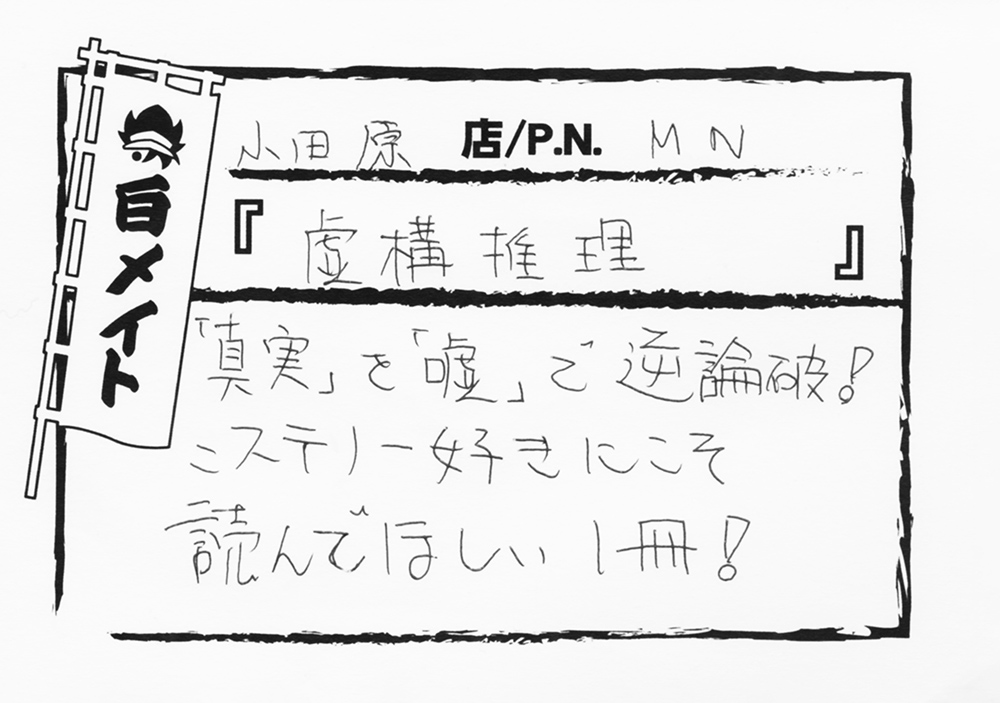 小田原 店/P.N. MN
百メイト
『虚構推理』
「真実」を「嘘」で逆論破！
ミステリー好きにこそ
読んでほしい1冊！